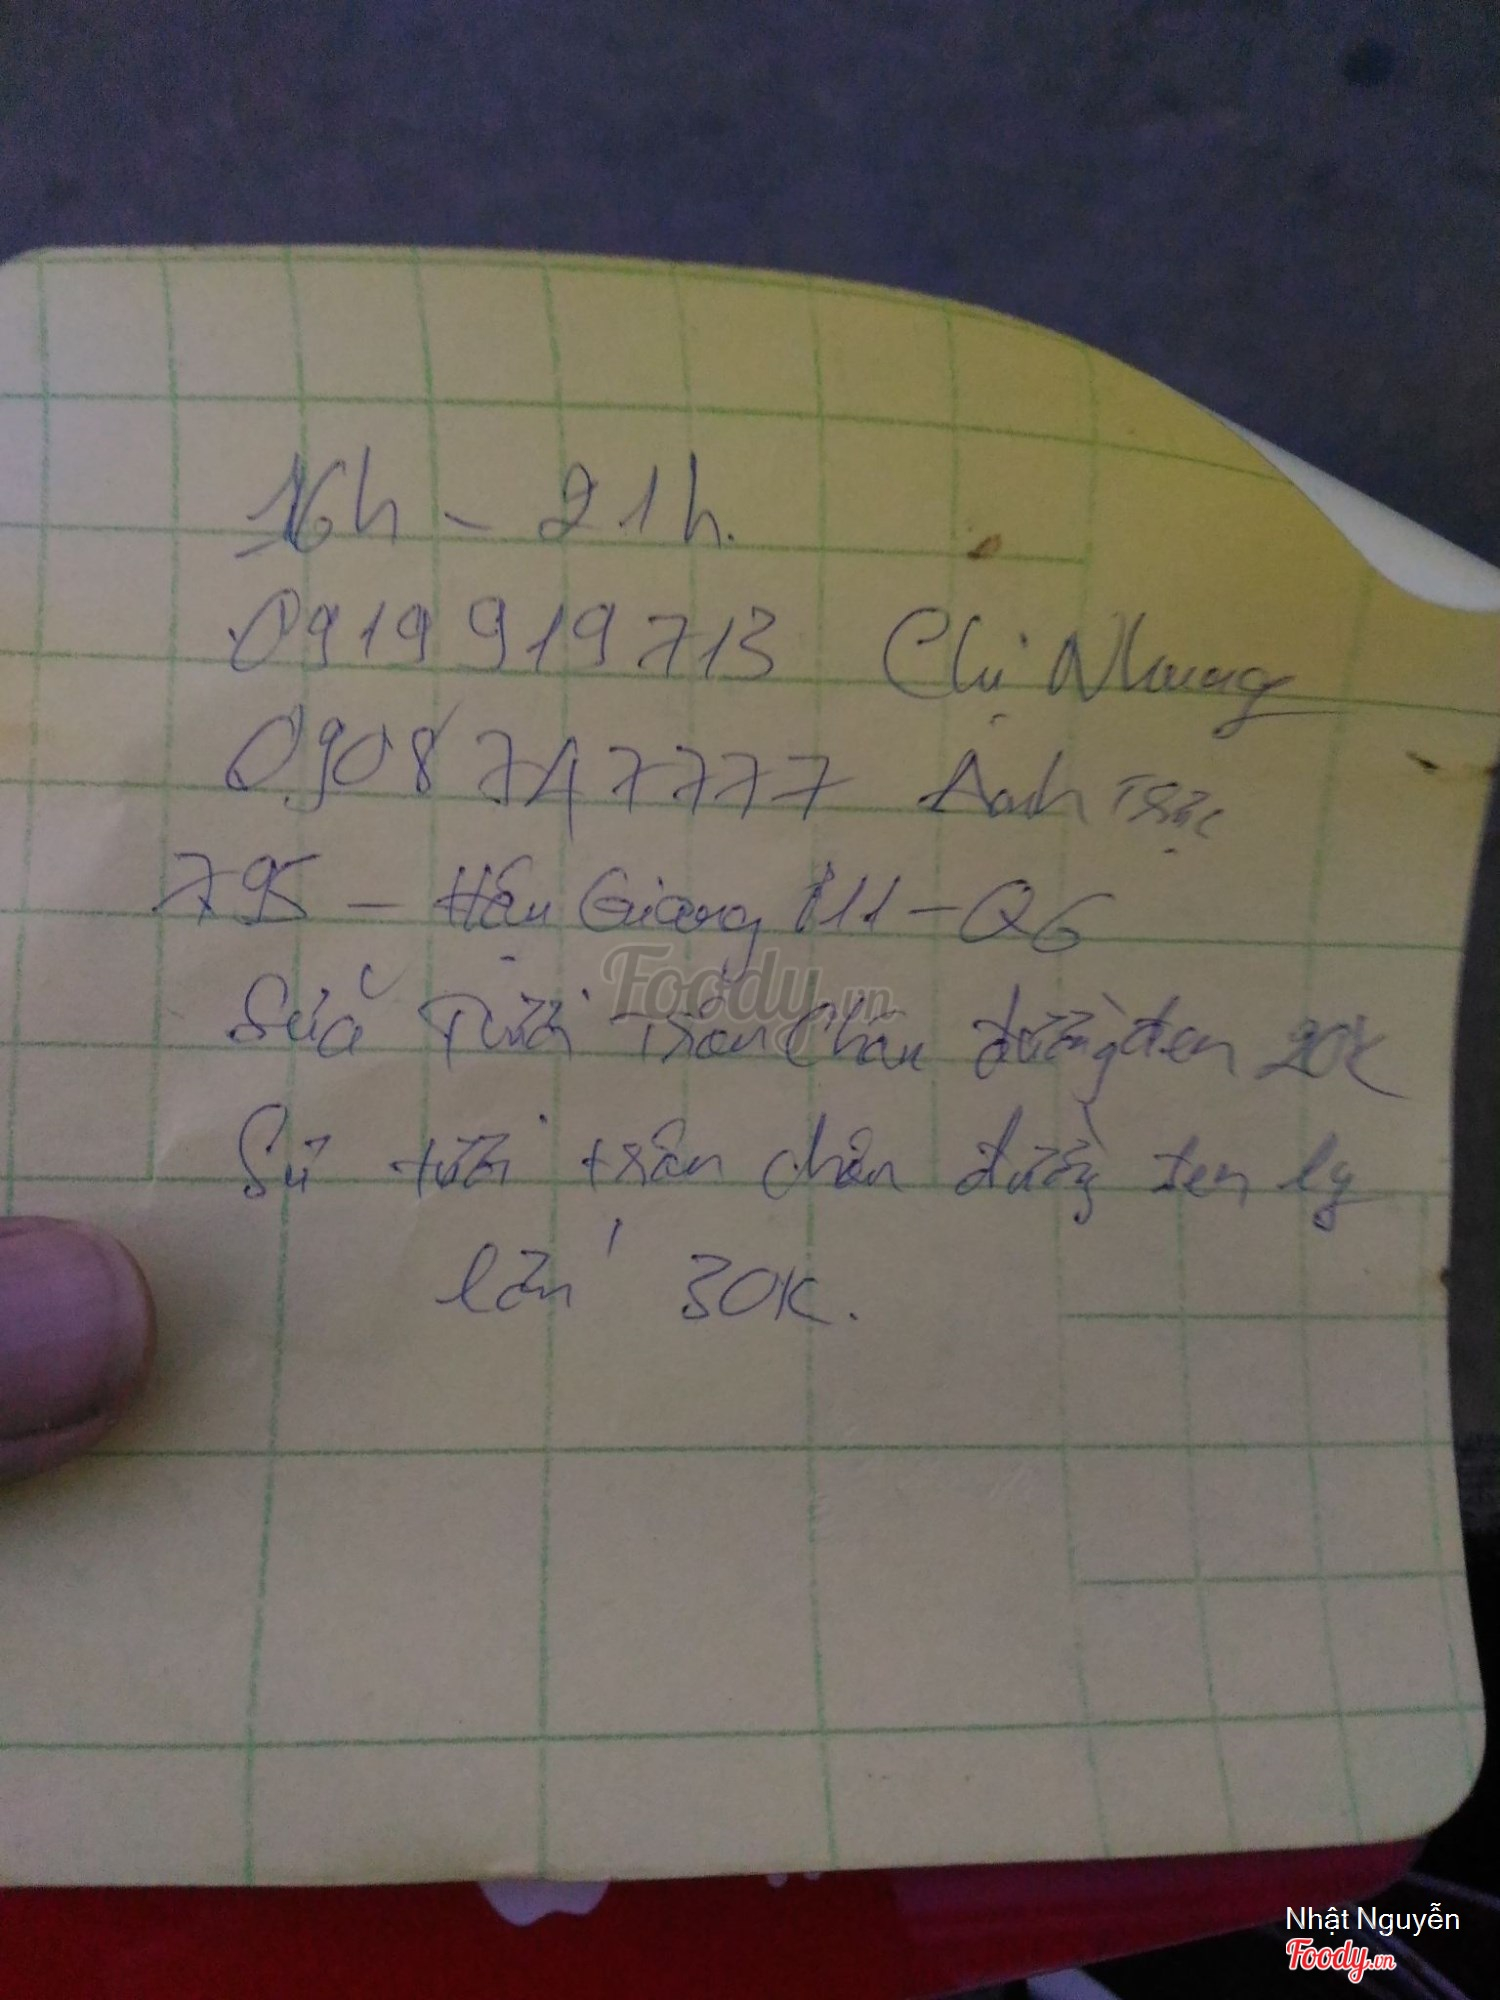 16h - 21h.
0919 919 713 Chị Nhung
0908 747777 Anh Trực
795 - Hậu Giang P11 - Q6
Sữa Tươi Trân Châu đường đen 20K
Sữ tươi trân châu đường đen ly
lớn 30K.
Foody.vn
Nhật Nguyễn
Foody.vn